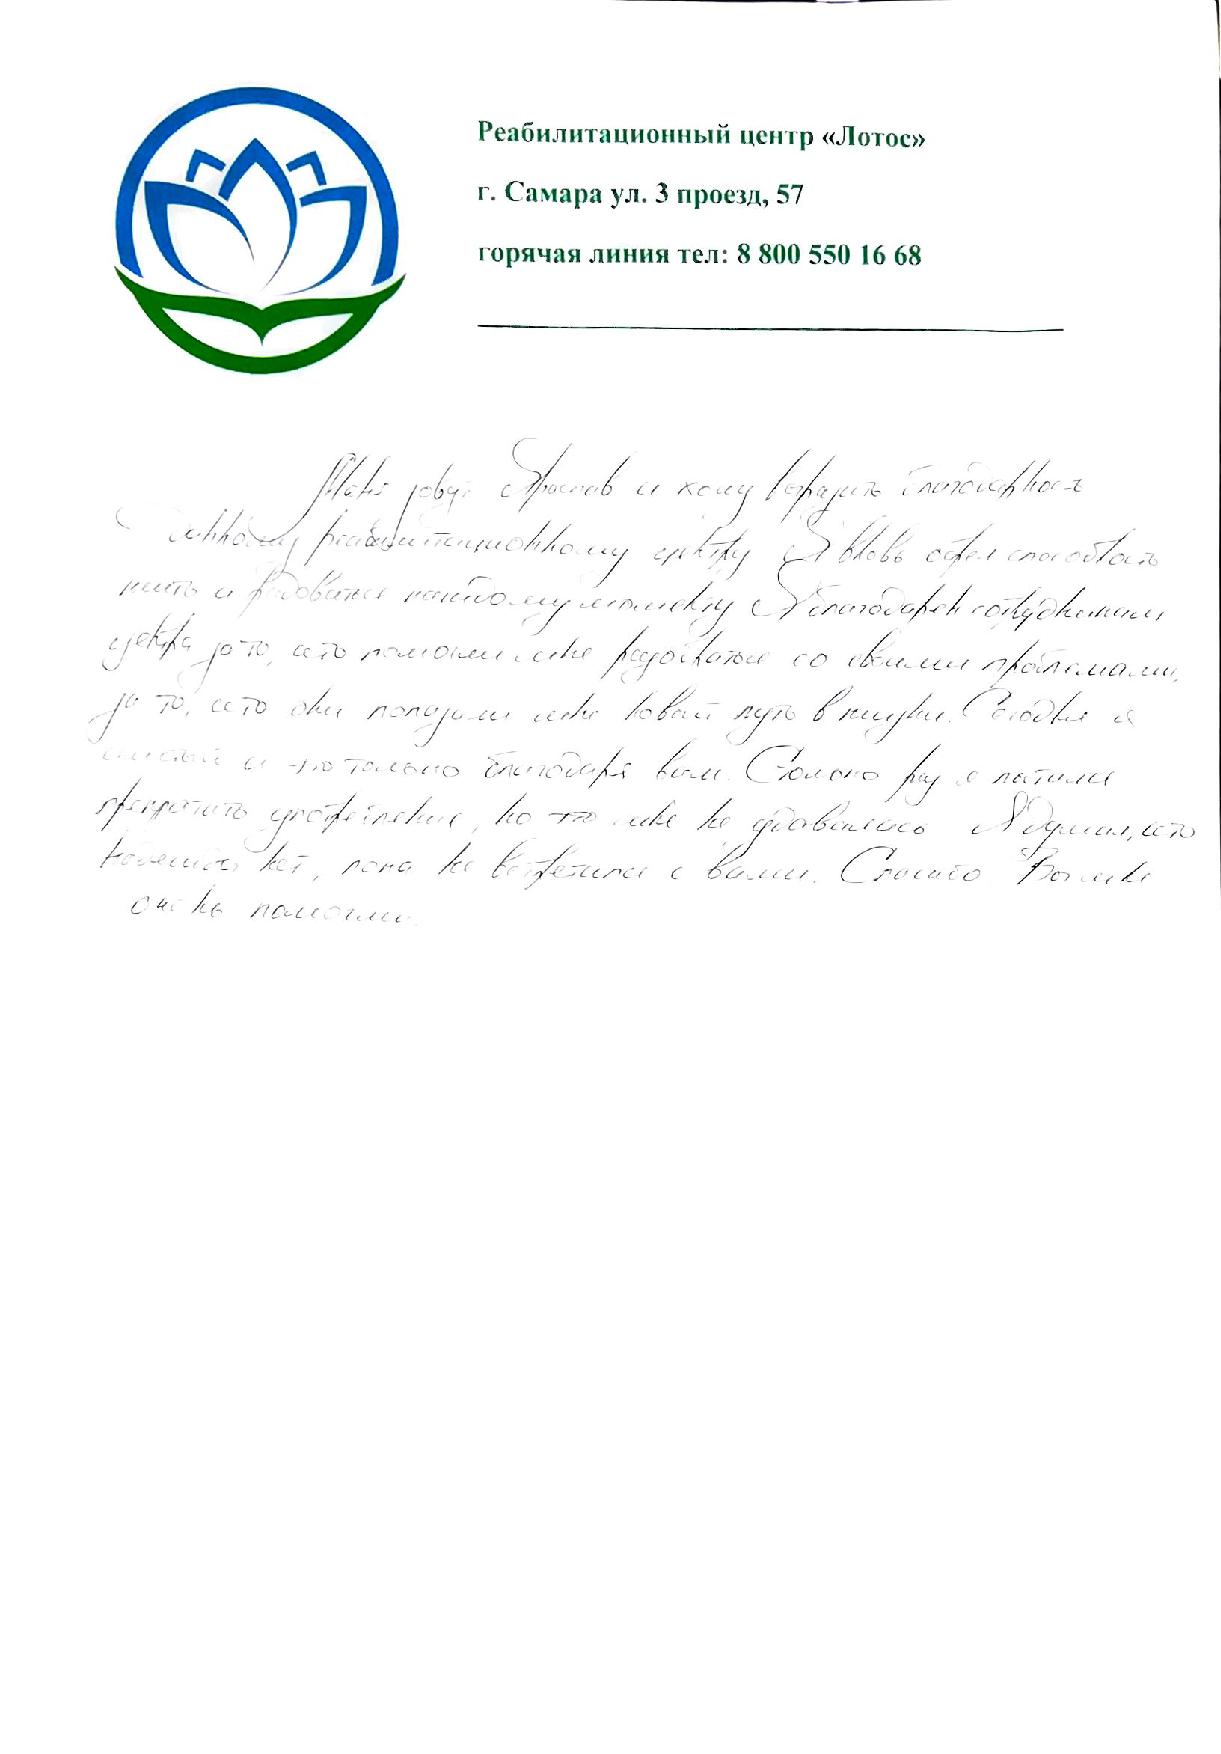 Реабилитационный центр «Лотос»
г. Самара ул. 3 проезд, 57
горячая линия тел: 8 800 550 16 68
Меня зовут и хочу выразить благодарность
данному реабилитационному центру Я вновь обрел способность
жить и радоваться каждому моменту Я благодарен сотрудникам
центра за то, что помогли мне разобраться со своими проблемами,
за то, что они показали мне новый путь в жизни. Сегодня я
чистый и это только благодаря вам. Сколько раз я пытался
прекратить употребление, но это мне не удавалось Я думал, что
надежды нет, пока не встретился с вами. Спасибо Вы мне
очень помогли.